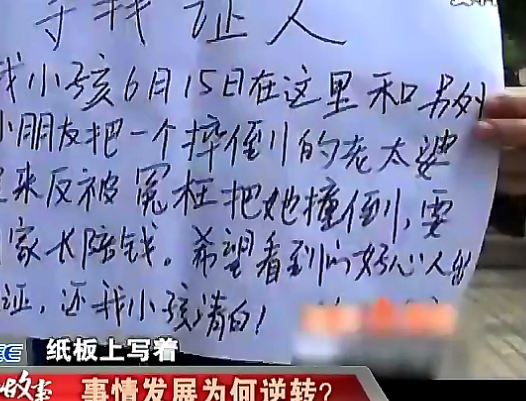 寻找证人
我小孩6月15日在这里和另外
小朋友把一个摔倒的老太婆
来反被冤枉把她撞倒,要
家长陪钱。希望看到的好心人给
证,还我小孩清白!
纸板上写着
故事
事情发展为何逆转?